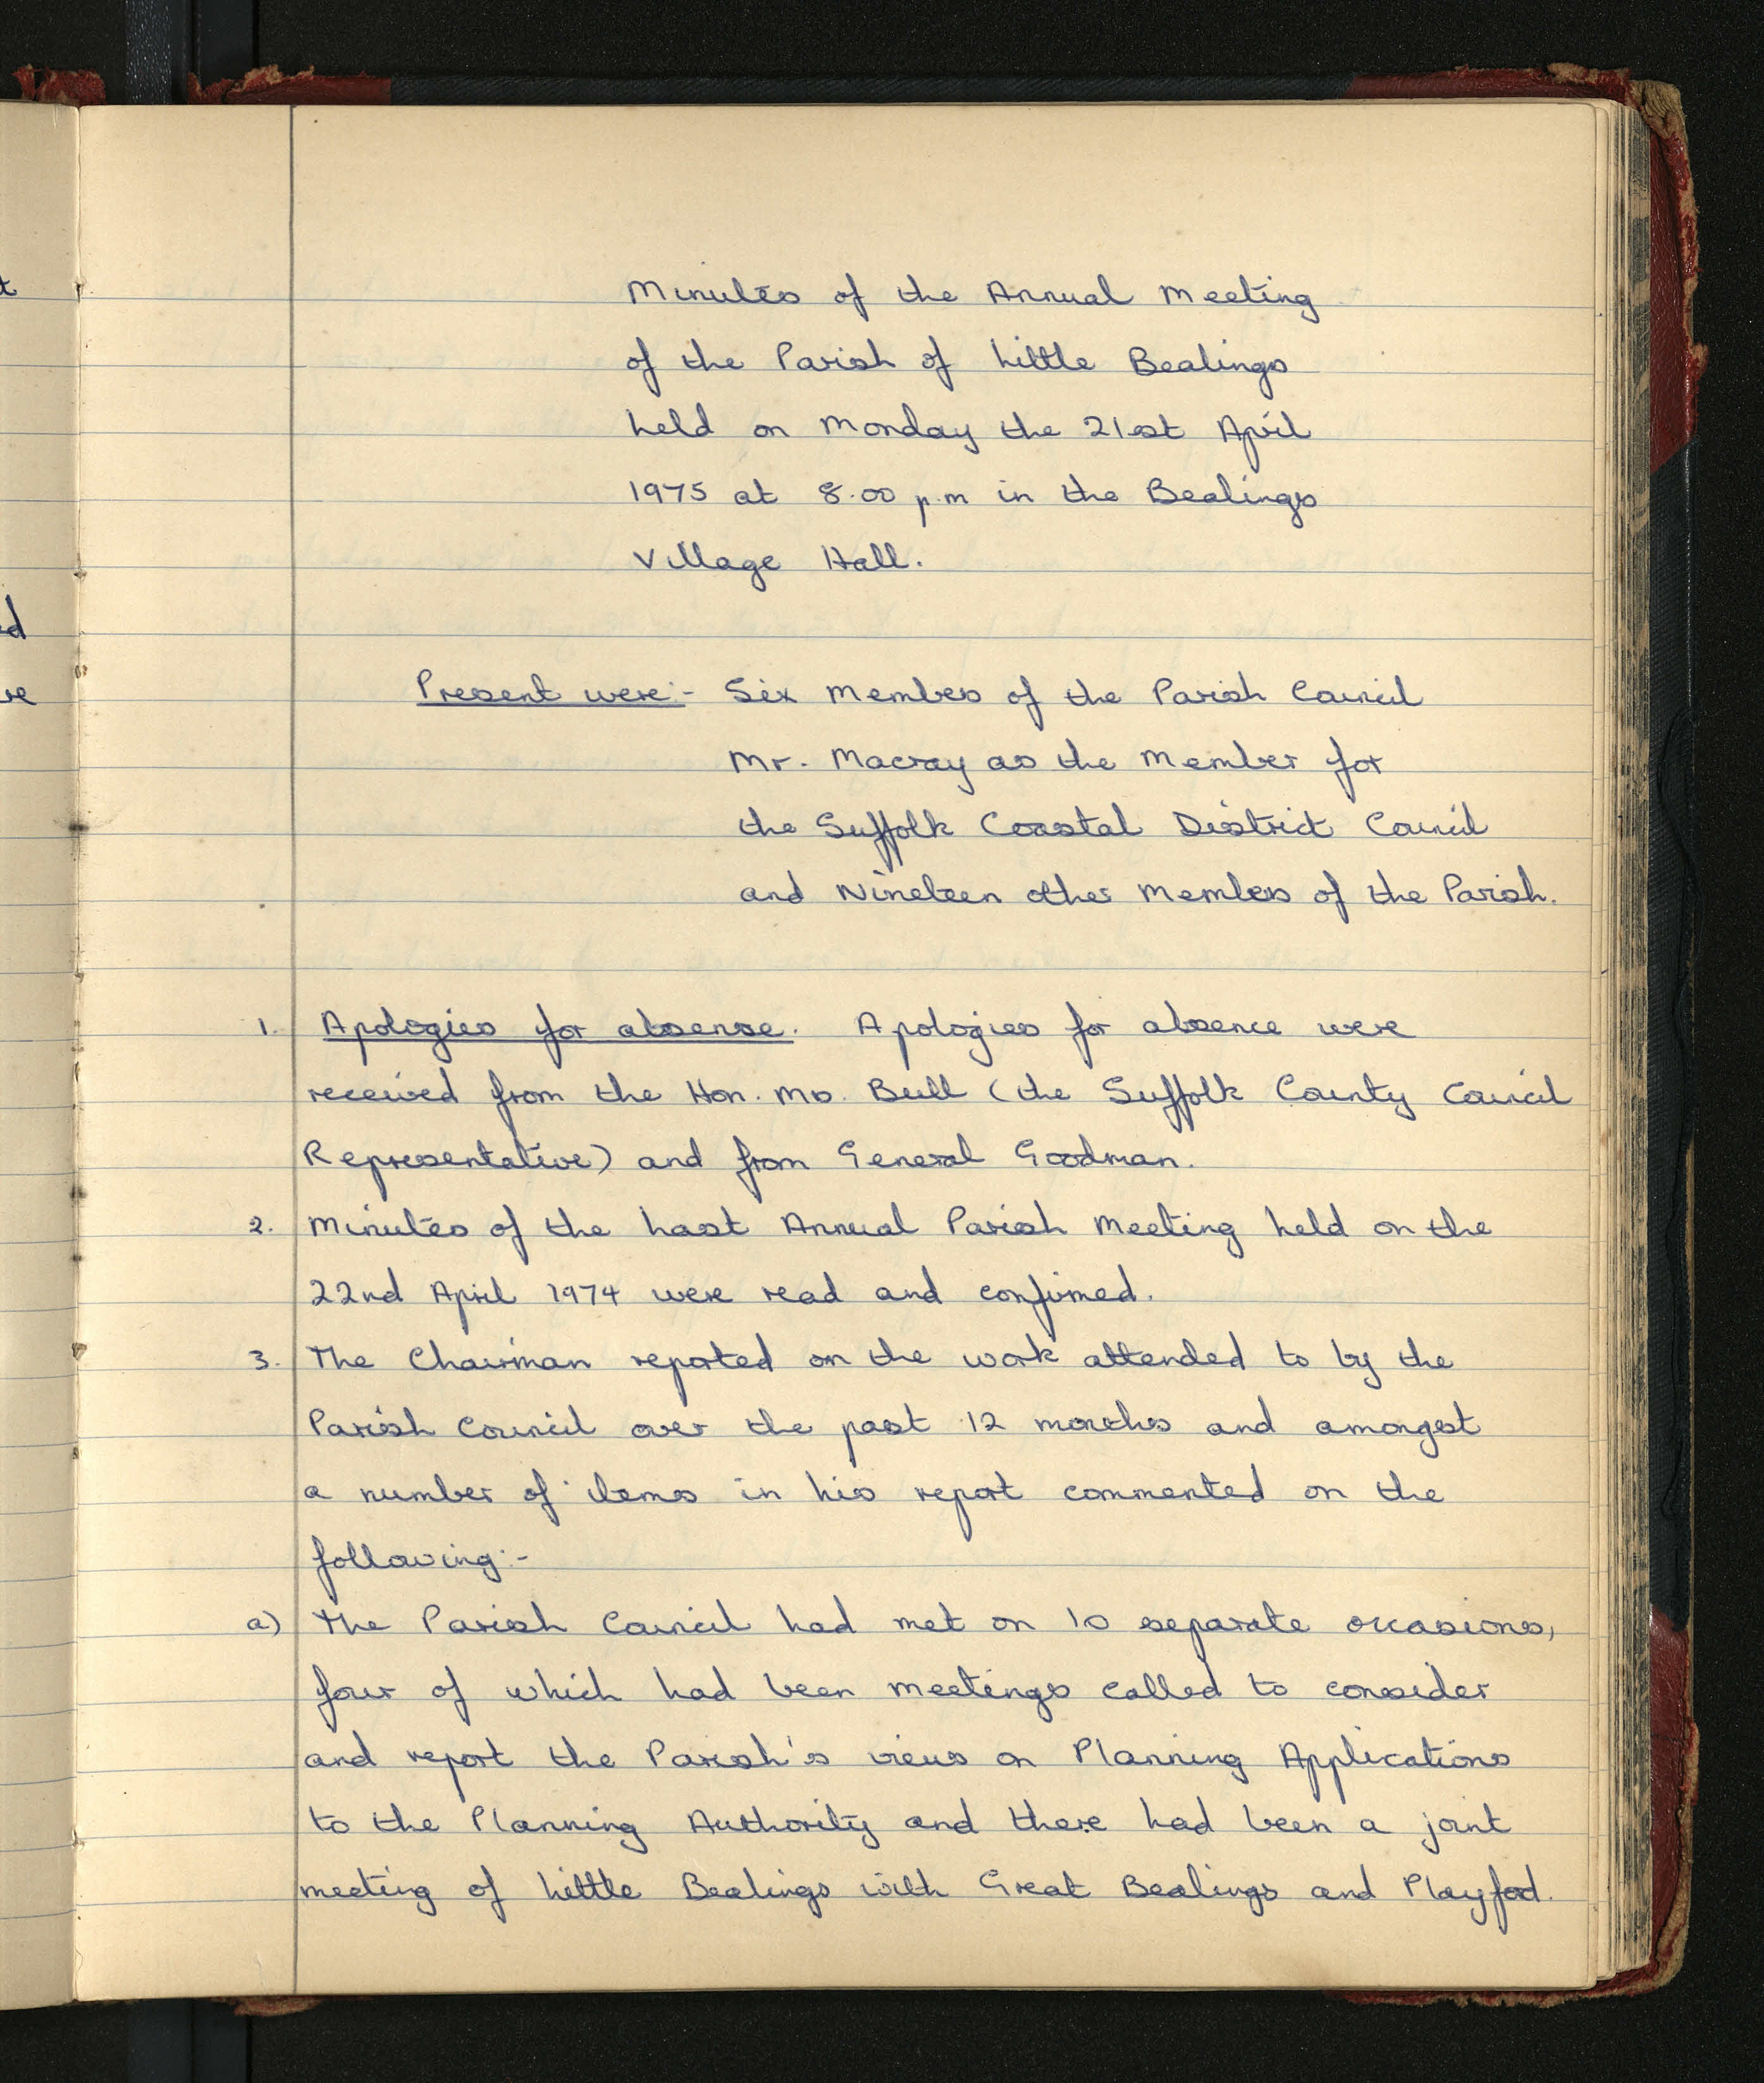 Minutes of the Annual Meeting
of the Parish of Little Bealings
held on Monday the 21st April
1975 at 8.00 p.m in the Bealings
Village Hall.
Present were:- Six Members of the Parish Council
Mr. Macray as the Member for
the Suffolk Coastal District Council
and Nineteen other Members of the Parish.
1. Apologies for absense. Apologies for absence were
received from the Hon. Mrs. Bull (the Suffolk County Council
Representative) and from General Goodman.
2. Minutes of the Last Annual Parish Meeting held on the
22nd April 1974 were read and confirmed.
3. The Chairman reported on the work attended to by the
Parish Council over the past 12 months and amongst
a number of items in his report commented on the
following:-
a) The Parish Council had met on 10 separate occasions,
four of which had been meetings called to consider
and report the Parish's views on Planning Applications
to the Planning Authority and there had been a joint
meeting of Little Bealings with Great Bealings and Playford.